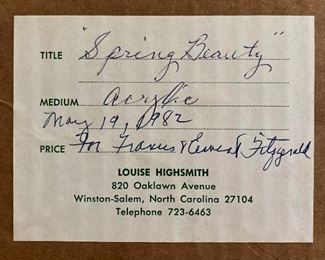 TITLE "Spring Beauty"
MEDIUM Acrylic
May 19, 1982
PRICE For Frances & Ernest Fitzgerald
LOUISE HIGHSMITH
820 Oaklawn Avenue
Winston-Salem, North Carolina 27104
Telephone 723-6463